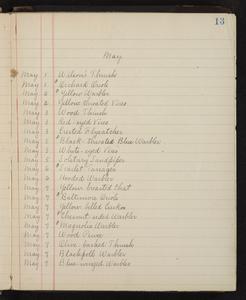 13
May
May 1 Wilson's Thrush
May 1 "Orchard Oriole
May 2 "Yellow Warbler
May 2 Yellow throated Vireo
May 3 Wood Thrush
May 3 Red-eyed Vireo
May 3 Crested Flycatcher
May 3 "Black-throated Blue Warbler
May 3 White-eyed Vireo
May 5 Solitary Sandpiper
May 6 "Scarlet Tanager
May 6 Hooded Warbler
May 7 Yellow breasted Chat
May 7 "Baltimore Oriole
May 7 Yellow-billed Cuckoo
May 7 "Chestnut-sided Warbler
May 7 "Magnolia Warbler
May 7 Wood Pewee
May 7 Olive-backed Thrush
May 7 Blackpoll Warbler
May 7 Blue-winged Warbler